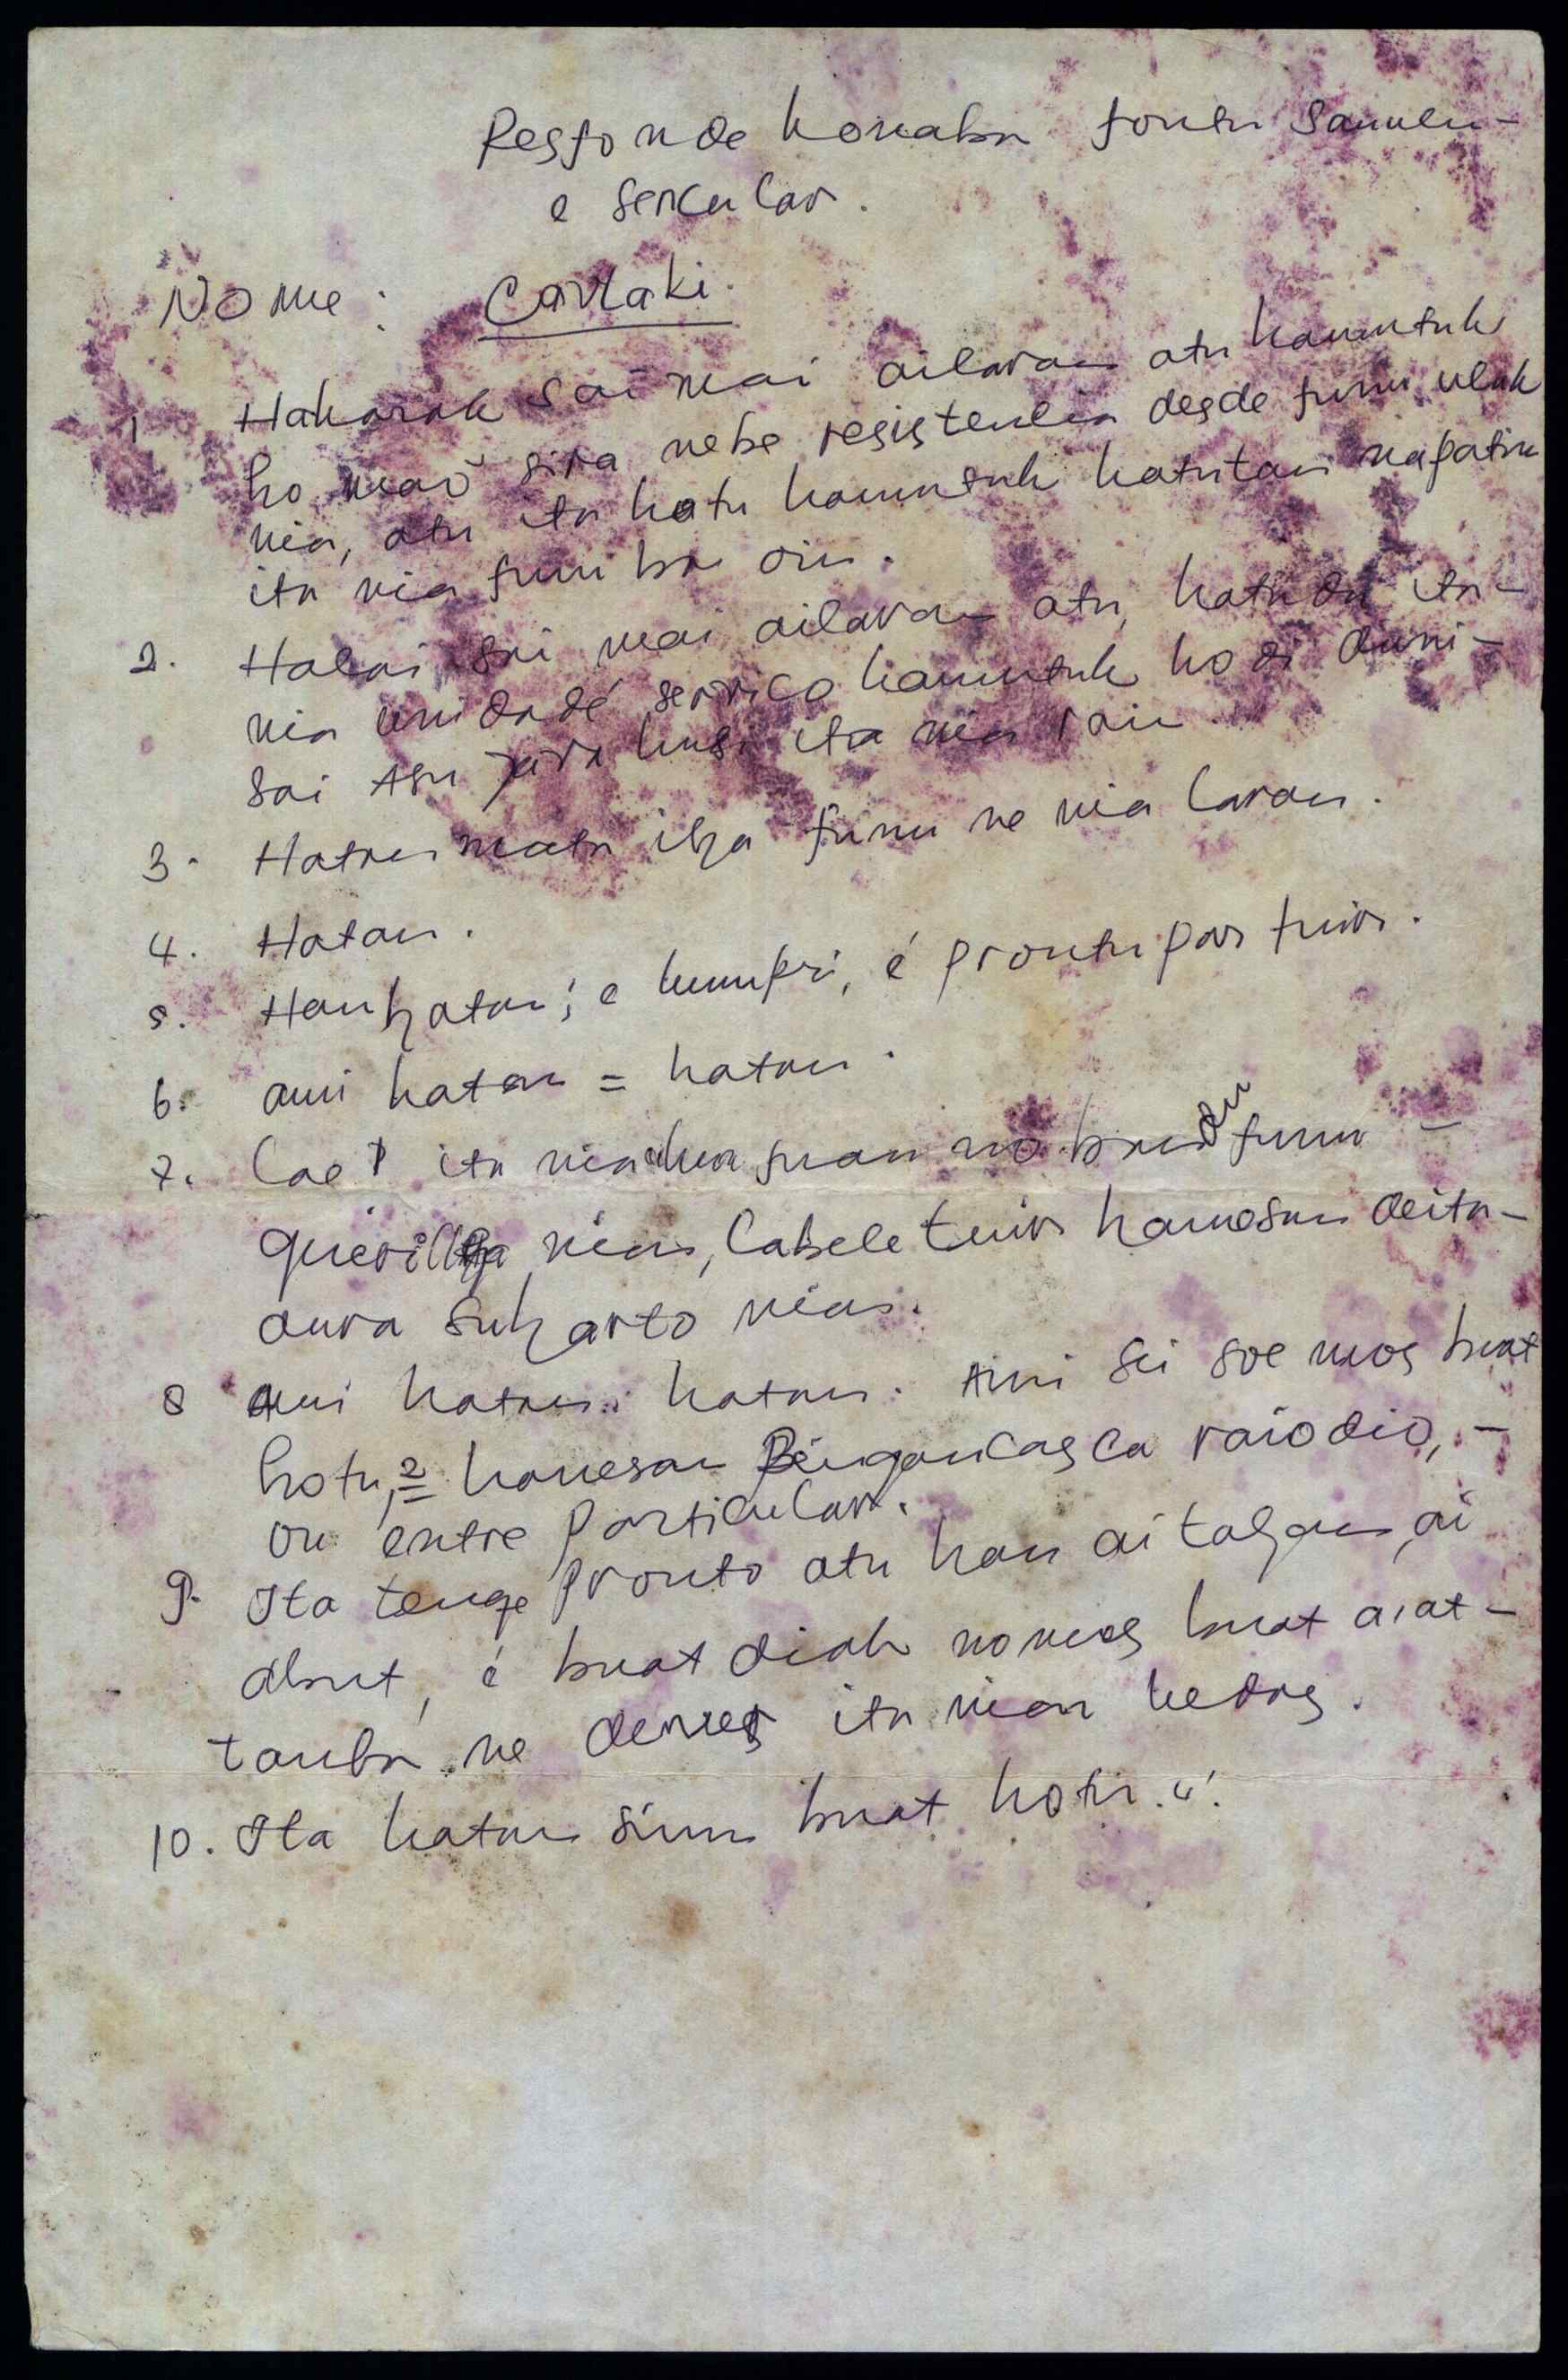 Responde konaba pontu sanulu-
e sercular.
Nome: Carlaki.
1 Hakarak sai mai ailaran atu hamutuk
ho maõ sira nebe resistencia desde funu uluk
nia, atu ita hotu hamutuk hatutan nafatin
ita nia funu ba oin.
2. Halai sai mai ailaran atu, hatudu ita-
nia unidade serviço hamutuk hodi duni-
sai asu java husi ita nia rain
3. Hatan mate iha funu ne nia laran.
4. Hatan.
5. Hau hatan; e kumpri, é prontu par tuir.
6. ami hatan = hatan.
7. Lae! ita nia funu
guerilha nian, labele tuir hanesan deita-
dura Suharto nian.
8 ami hatan: hatan. Ami sei soe mos buat
hotu, = hanesan raiodio, -
ou entre particular.
9. Ita tenqe pronto atu han ai tahan, ai
abut, é buat diak no mos buat aiat-
tanba ne ita nian
10. Ita hatan simu buat hotu.